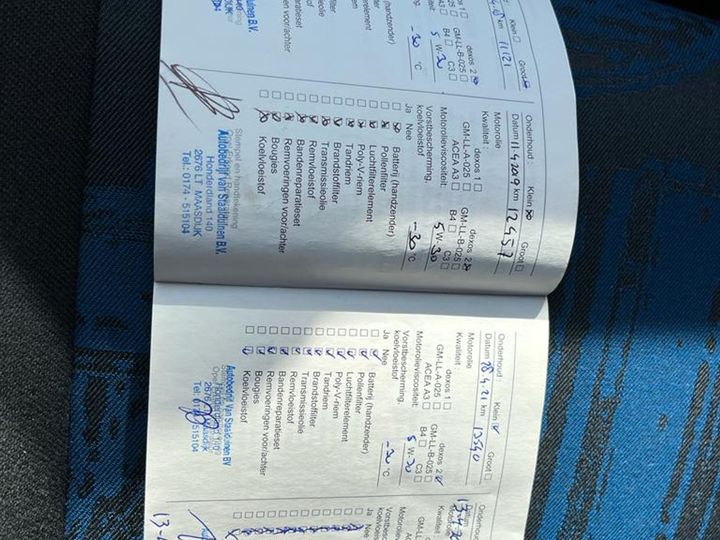 Klein
Groot
km 11121
dexos 2
GM-LL-B-025
C3
5 W-30
-30 °C
Onderhoud : Klein Groot
Datum 11 4 2019 km 12457
Motorolie
Kwaliteit : dexos 1 dexos 2
GM-LL-A-025 GM-LL-B-025
ACEA A3 B4 C3
Motorolieviscositeit: 5 W-30
Vorstbescherming,
koelvloeistof -30 °C
Ja Nee
Batterij (handzender)
Pollenfilter
Luchtfilterelement
Poly-V-riem
Tandriem
Brandstoffilter
Transmissieolie
Remvloeistof
Bandenreparatieset
Remvoeringen voor/achter
Bougies
Koelvloeistof
Stempel en handtekening
Autobedrijf Van Staalduinen B.V.
Honderdland 140
2676 LT MAASDIJK
Tel.: 0174 - 515104
Onderhoud : Klein Groot
Datum 28 4 - 21 km 13540
Motorolie
Kwaliteit dexos 1 dexos 2
GM-LL-A-025 GM-LL-B-025
ACEA A3 B4 C3
Motorolieviscositeit: 5 W-30
Vorstbescherming,
koelvloeistof -30 °C
Ja Nee
Batterij (handzender)
Pollenfilter
Luchtfilterelement
Poly-V-riem
Tandriem
Brandstoffilter
Transmissieolie
Remvloeistof
Bandenreparatieset
Remvoeringen voor/achter
Bougies
Koelvloeistof
Autobedrijf Van Staalduinen BV
Honderdland 140
Ja Nee